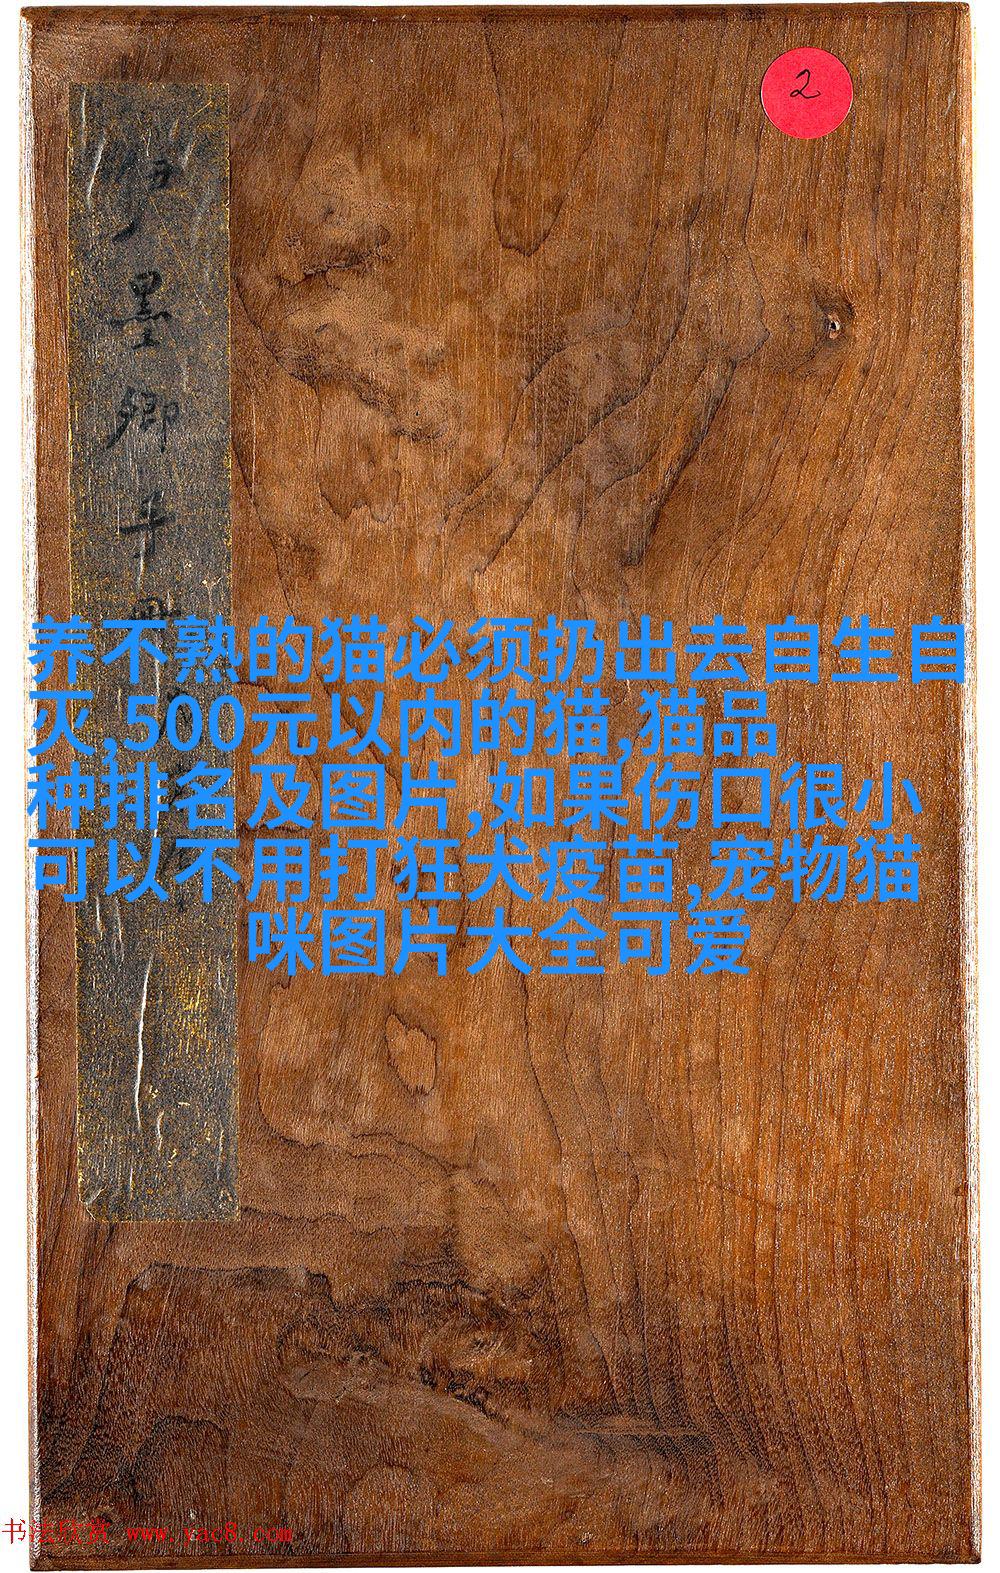 2
墨卿手
养不熟的猫必须扔出去自生自
灭,500元以内的猫,猫品
种排名及图片,如果伤口很小
可以不用打狂犬疫苗,宠物猫
咪图片大全可爱
书法欣赏 www.yac8.com